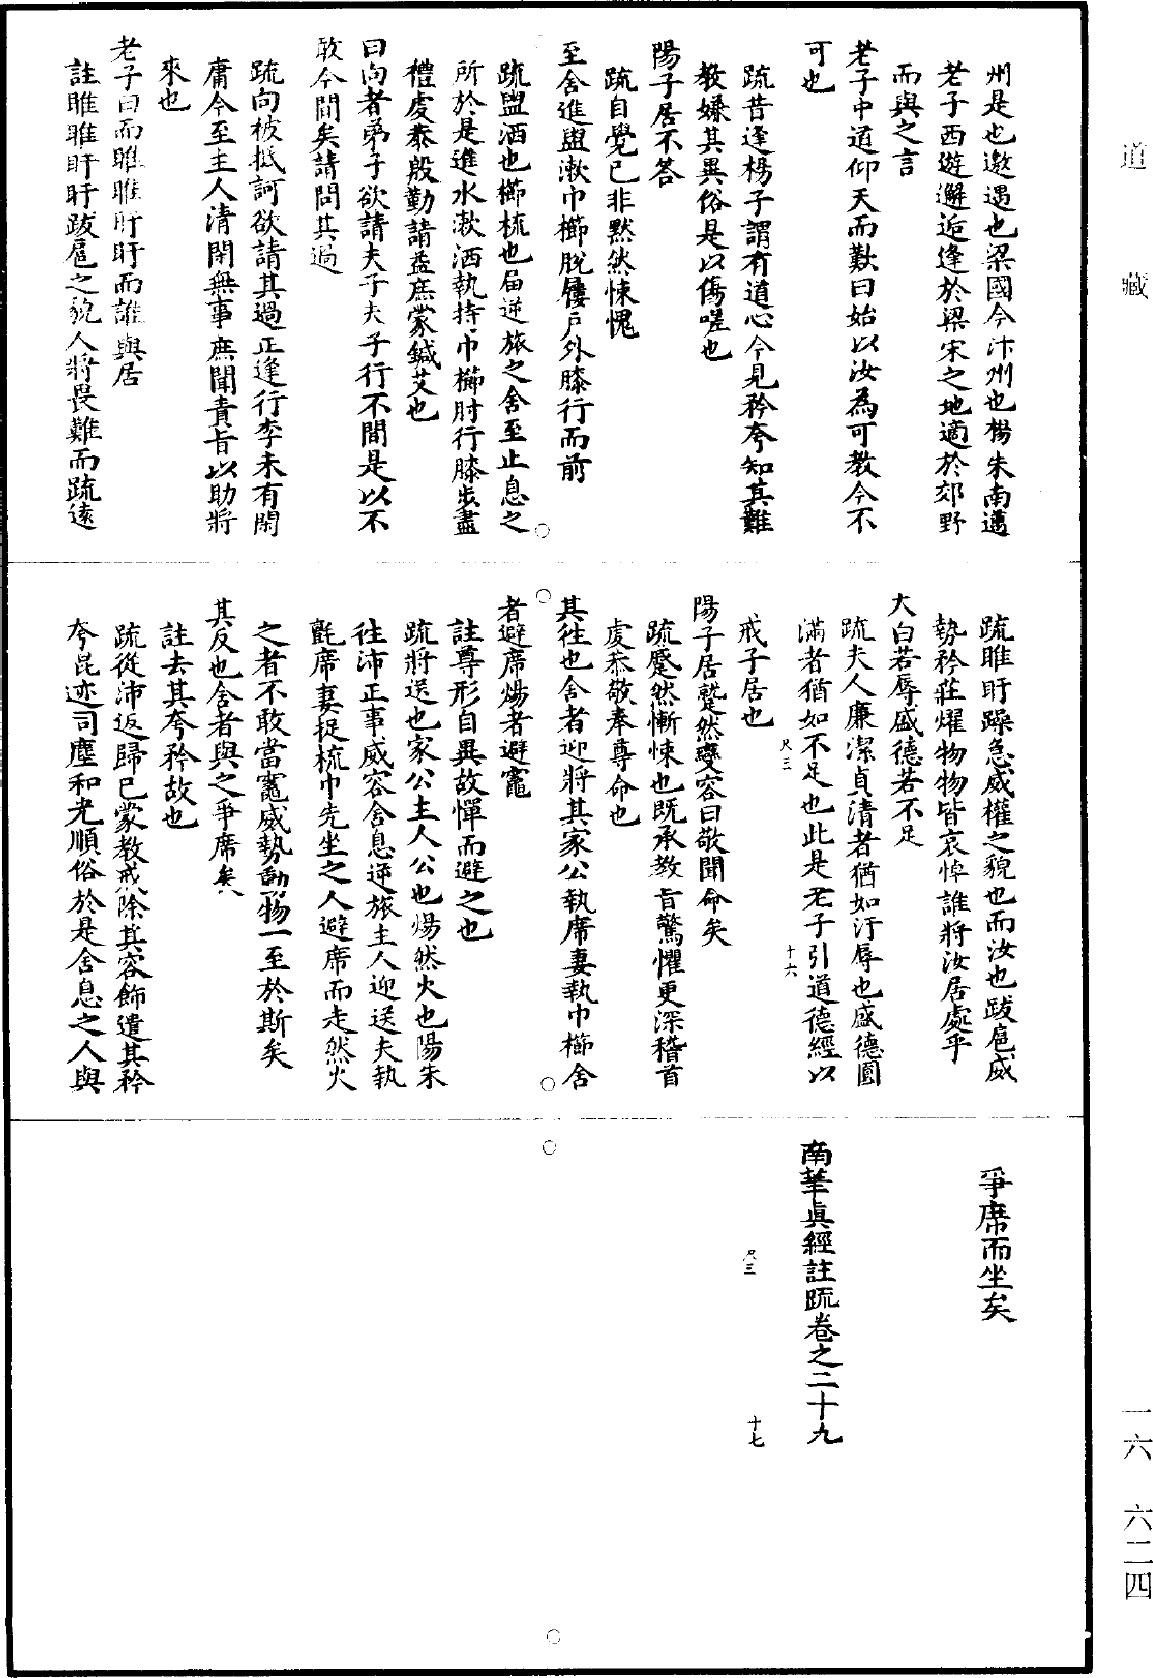 道藏
州是也邀遇也梁國今汴州也楊朱南邁
老子西遊邂逅逢於梁宋之地適於郊野
而與之言
老子中道仰天而歎曰始以汝為可教今不
可也
疏昔逢楊子謂有道心今見矜夸知其難
教嫌其異俗是以傷嗟也
陽子居不答
疏自覺己非默然悚愧
至舍進盥漱巾櫛脫屨戶外膝行而前
疏盥洒也櫛梳也屆逆旅之舍至止息之
所於是進水漱洒執持巾櫛肘行膝步盡
禮虔恭殷勤請益庶蒙鍼艾也
曰向者弟子欲請夫子夫子行不間是以不
敢今間矣請問其過
疏向被抵訶欲請其過正逢行李未有閑
庸今至主人清閑無事庶聞責旨以助將
來也
老子曰而睢睢盱盱而誰與居
註睢睢盱盱跋扈之貌人將畏難而疏遠
疏睢盱躁急威權之貌也而汝也跋扈威
勢矜莊燿物物皆哀悼誰將汝居處乎
大白若辱盛德若不足
疏夫人廉潔貞清者猶如汙辱也盛德圓
滿者猶如不足也此是老子引道德經以
尺三 十六
戒子居也
陽子居蹵然變容曰敬聞命矣
疏蹵然慚悚也既承教旨驚懼更深稽首
虔恭敬奉尊命也
其往也舍者迎將其家公執席妻執巾櫛舍
者避席煬者避竈
註尊形自異故憚而避之也
疏將送也家公主人公也煬然火也陽朱
往沛正事威容舍息逆旅主人迎送夫執
氈席妻捉梳巾先坐之人避席而走然火
之者不敢當竈威勢動物一至於斯矣
其反也舍者與之爭席矣
註去其夸矜故也
疏從沛返歸已蒙教戒除其容飾遣其矜
夸混迹司塵和光順俗於是舍息之人與
爭席而坐矣
南華真經註疏卷之二十九
尺三 十七
一六 六二四